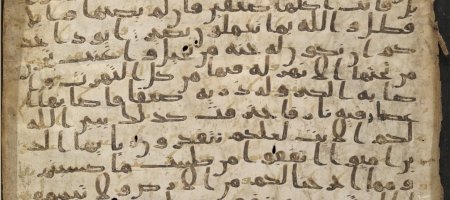 فاتت اكلها ضعفين فان لم يصبها وابل
فطل والله بما تعملون بصير ايود احد
كم ان تكون له جنة من نخيل واعنب تجرى
من تحتها الانهر له فيها من كل الثمرت وا
صابه الكبر وله ذرية ضعفا فاصابها ا
عصار فيه نار فاحترقت كذلك يبين الله
لكم الايت لعلكم تتفكرون يايها الذ
ين امنوا انفقوا من طيبت ما كسبتم
ومما اخرجنا لكم من الارض ولا تيمموا